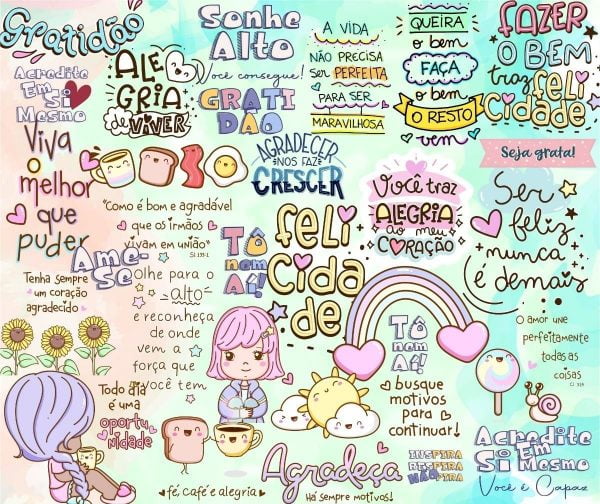 Gratidão
Acredite
Em
Si
Mesmo
ALE
GRIA
de VIVER
Sonhe
Alto
Você consegue!
GRATI
DÃO
A VIDA
NÃO PRECISA
Ser PERFEITA
PARA SER
MARAVILHOSA
QUEIRA
o bem
FAÇA
o bem
O RESTO
vem
FAZER
O BEM
traz
FELI
CIDADE
Seja grata!
Viva
o
melhor
que
puder
AGRADECER
NOS FAZ
CRESCER
"Como é bom e agradável
que os irmãos
vivam em união"
Sl 133:1
Você traz
ALEGRIA
ao meu
CORAÇÃO
Ser
feliz
nunca
é demais
Ame-
Se
Tenha sempre
um coração
agradecido
Olhe para o
alto
e reconheça
de onde
vem a
força que
você tem
Tô
nem
Aí!
feli
cida
de
Tô
nem
Aí!
busque
motivos
para
continuar!
O amor une
perfeitamente
todas as
coisas
Cl 3:14
Todo dia
é uma
oportu
nidade
fé, café e alegria
Agradeça
Há sempre motivos!
INSPIRA
RESPIRA
NÃO PIRA
Acredite
Em
Si Mesmo
Você é Capaz